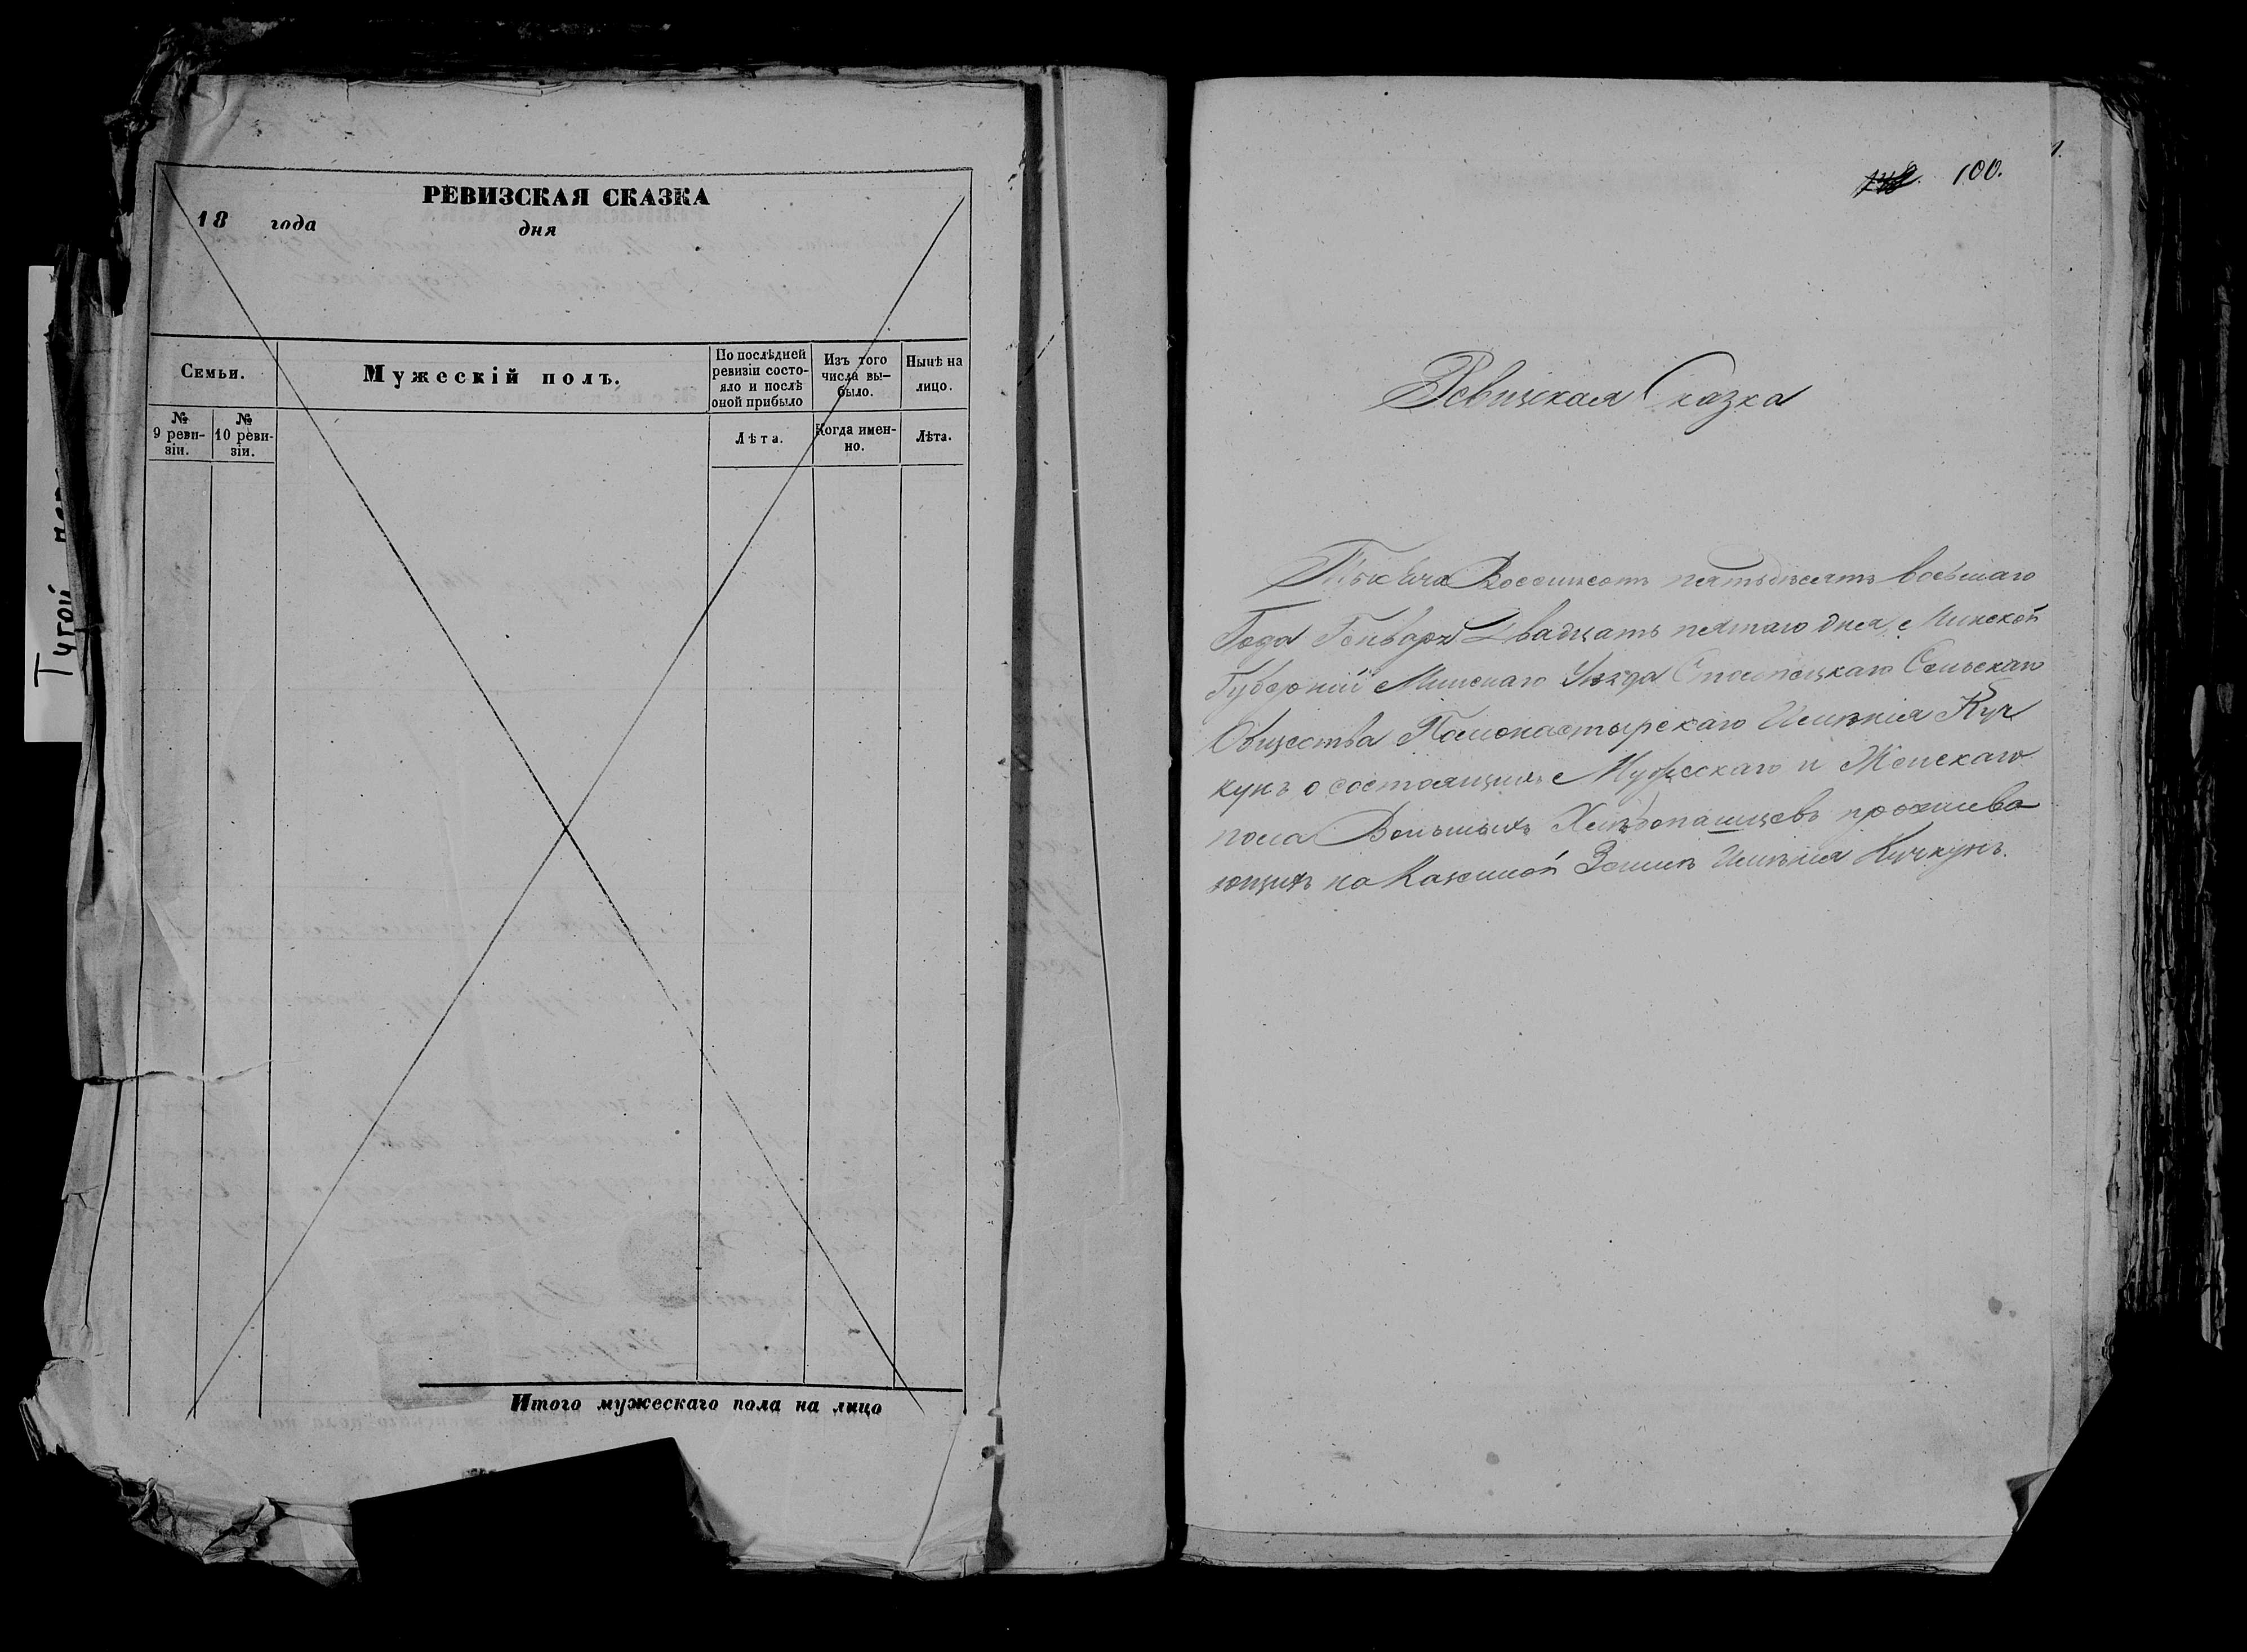 РЕВИЗСКАЯ СКАЗКА
18 года дня
Семьи.
Мужескій полъ.
По послѣдней ревизіи состо-
яло и послѣ
оной прибыло
Изъ того
числа вы-
было.
Нынѣ на
лицо.
№
9 реви-
зіи.
№
10 реви-
зіи.
Лѣта.
Когда имен-
но.
Лѣта.
Итого мужескаго пола на лицо
Тугой
100.
1.
Ревизская Сказка
Тысяча Восемьсотъ пятьдесятъ восьмаго
Года Генваря Двадцать пятаго дня, Минской
Губерніи Минскаго Уѣзда Столпецкаго Сельскаго
Общества Помонастырскаго Имѣнія Куч
кунъ о состоящихъ Мужескаго и Женскаго
пола Вольныхъ Хлѣбопашцевъ прожива
ющихъ на Казенной Землѣ Имѣнія Кучкунъ.